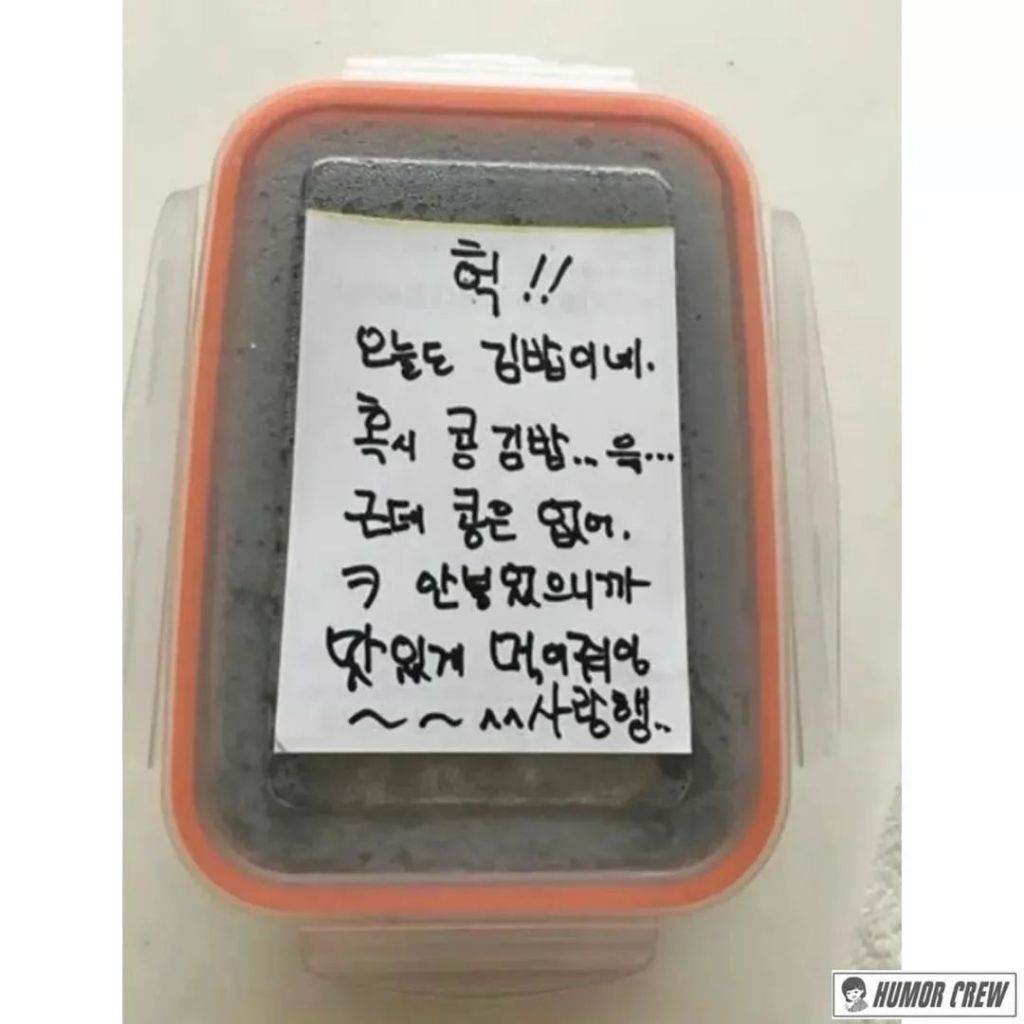 헉!!
오늘도 김밥이네.
혹시 콩김밥.. 윽...
근데 콩은 없어.
ㅋ 안넣었으니까
맛있게 먹어줘잉
~~ ^^사랑행..
HUMOR CREW